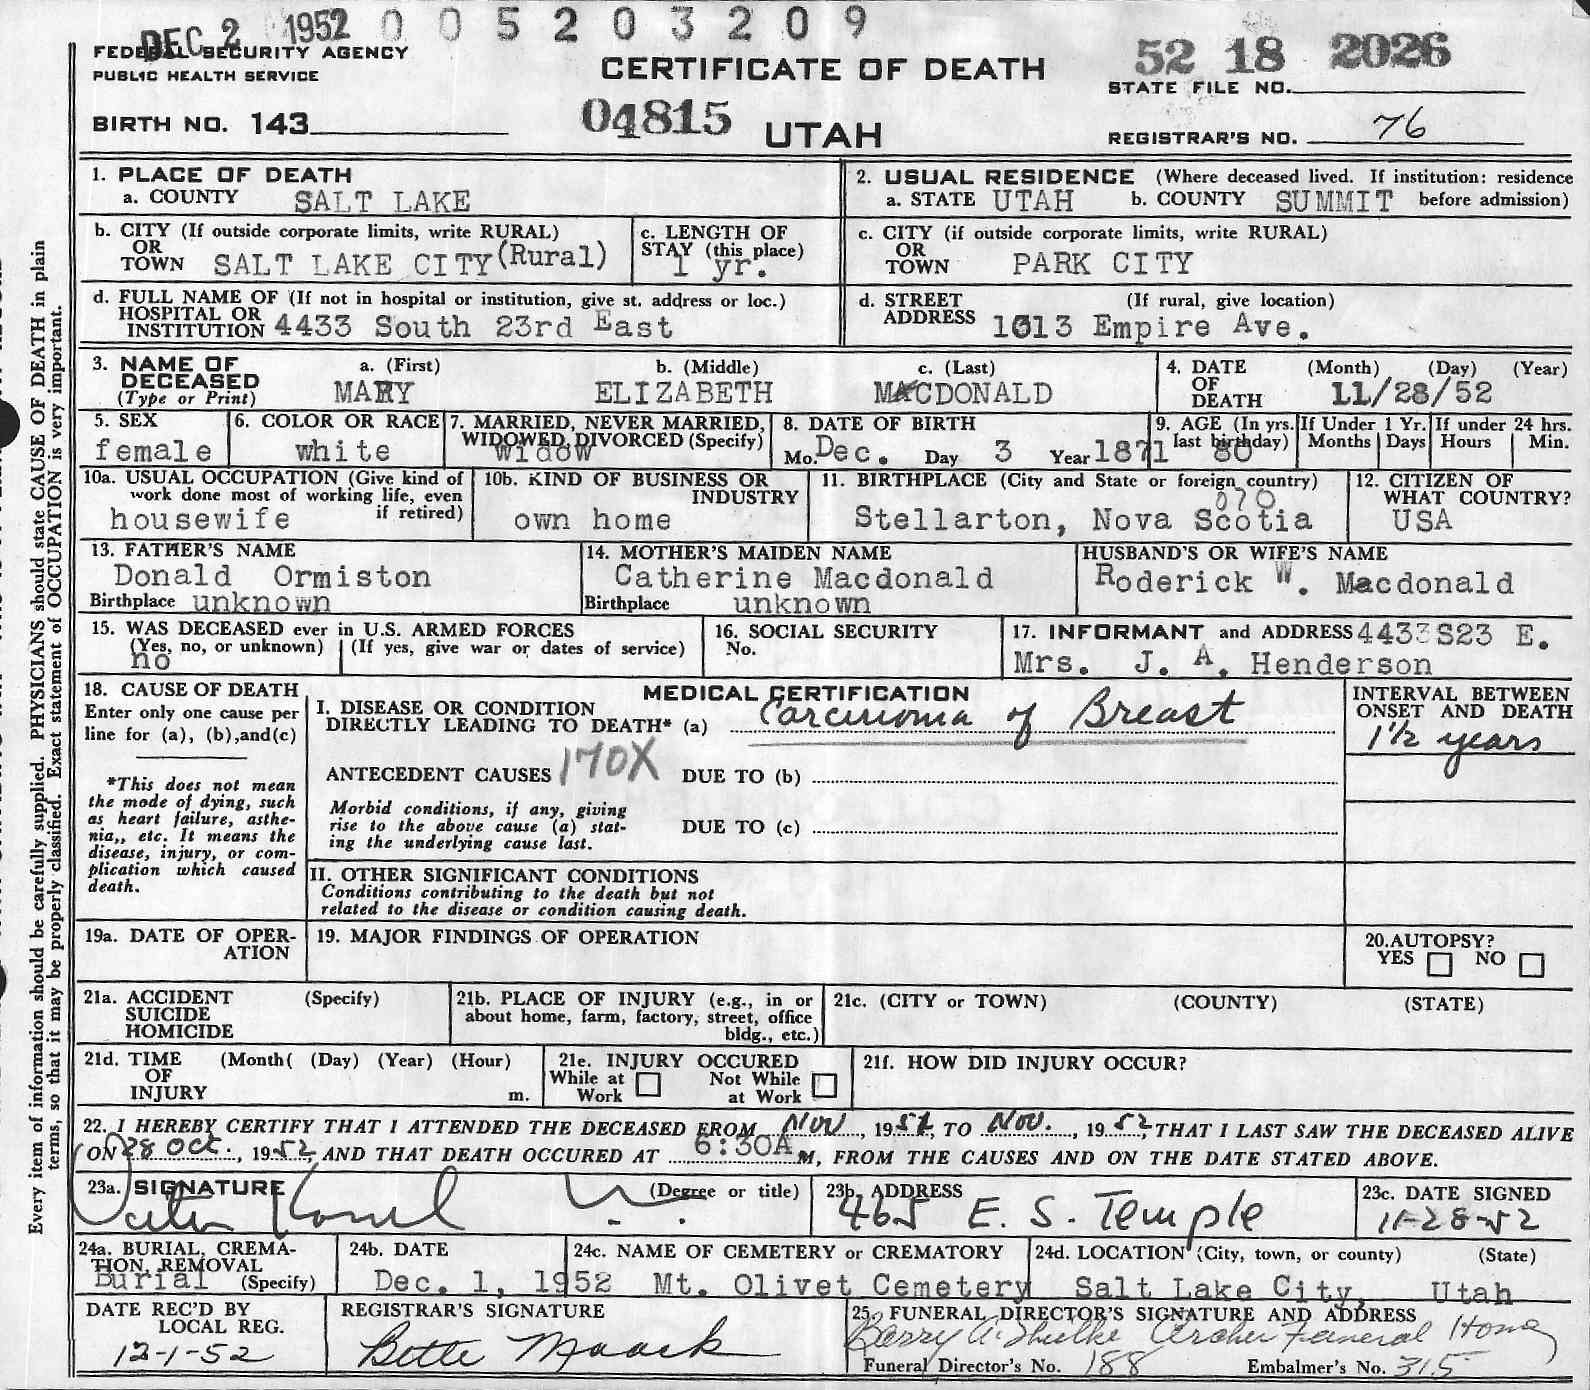 DEC 2 1952 0 0 5 2 0 3 2 0 9
FEDERAL SECURITY AGENCY
PUBLIC HEALTH SERVICE
CERTIFICATE OF DEATH
52 18 2026
STATE FILE NO.
BIRTH NO. 143
04815 UTAH
REGISTRAR'S NO. 76
1. PLACE OF DEATH
a. COUNTY SALT LAKE
2. USUAL RESIDENCE (Where deceased lived. If institution: residence
a. STATE UTAH b. COUNTY SUMMIT before admission)
b. CITY (If outside corporate limits, write RURAL)
OR
TOWN SALT LAKE CITY (Rural)
c. LENGTH OF
STAY (this place)
1 yr.
c. CITY (if outside corporate limits, write RURAL)
OR
TOWN PARK CITY
d. FULL NAME OF (If not in hospital or institution, give st. address or loc.)
HOSPITAL OR
INSTITUTION 4433 South 23rd East
d. STREET (If rural, give location)
ADDRESS 1013 Empire Ave.
3. NAME OF a. (First) b. (Middle) c. (Last)
DECEASED
(Type or Print) MARY ELIZABETH MACDONALD
4. DATE (Month) (Day) (Year)
OF
DEATH 11/28/52
5. SEX
female
6. COLOR OR RACE
white
7. MARRIED, NEVER MARRIED,
WIDOWED, DIVORCED (Specify)
widow
8. DATE OF BIRTH
Mo. Dec. Day 3 Year 1871
9. AGE (In yrs.
last birthday)
80
If Under 1 Yr.
Months Days
If under 24 hrs.
Hours Min.
10a. USUAL OCCUPATION (Give kind of
work done most of working life, even
if retired)
housewife
10b. KIND OF BUSINESS OR
INDUSTRY
own home
11. BIRTHPLACE (City and State or foreign country)
070
Stellarton, Nova Scotia
12. CITIZEN OF
WHAT COUNTRY?
USA
13. FATHER'S NAME
Donald Ormiston
Birthplace unknown
14. MOTHER'S MAIDEN NAME
Catherine Macdonald
Birthplace unknown
HUSBAND'S OR WIFE'S NAME
Roderick W. Macdonald
15. WAS DECEASED ever in U.S. ARMED FORCES
(Yes, no, or unknown) (If yes, give war or dates of service)
no
16. SOCIAL SECURITY
No.
17. INFORMANT and ADDRESS 4433 S23 E.
Mrs. J. A. Henderson
18. CAUSE OF DEATH
Enter only one cause per
line for (a), (b),and(c)
*This does not mean
the mode of dying, such
as heart failure, asthe-
nia,, etc. It means the
disease, injury, or com-
plication which caused
death.
MEDICAL CERTIFICATION
I. DISEASE OR CONDITION
DIRECTLY LEADING TO DEATH* (a) Carcinoma of Breast
ANTECEDENT CAUSES 170X DUE TO (b)
Morbid conditions, if any, giving
rise to the above cause (a) stat-
ing the underlying cause last.
DUE TO (c)
II. OTHER SIGNIFICANT CONDITIONS
Conditions contributing to the death but not
related to the disease or condition causing death.
INTERVAL BETWEEN
ONSET AND DEATH
1½ years
19a. DATE OF OPER-
ATION
19. MAJOR FINDINGS OF OPERATION
20.AUTOPSY?
YES NO
21a. ACCIDENT (Specify)
SUICIDE
HOMICIDE
21b. PLACE OF INJURY (e.g., in or
about home, farm, factory, street, office
bldg., etc.)
21c. (CITY or TOWN) (COUNTY) (STATE)
21d. TIME (Month( (Day) (Year) (Hour)
OF
INJURY m.
21e. INJURY OCCURED
While at Work Not While at Work
21f. HOW DID INJURY OCCUR?
22. I HEREBY CERTIFY THAT I ATTENDED THE DECEASED FROM Nov, 195, TO Nov., 1952, THAT I LAST SAW THE DECEASED ALIVE
ON 28 Oct., 1952, AND THAT DEATH OCCURED AT 6:30A M, FROM THE CAUSES AND ON THE DATE STATED ABOVE.
23a. SIGNATURE (Degree or title)
23b. ADDRESS
465 E. S. Temple
23c. DATE SIGNED
11-28-52
24a. BURIAL, CREMA-
TION, REMOVAL
Burial (Specify)
24b. DATE
Dec. 1, 1952
24c. NAME OF CEMETERY or CREMATORY
Mt. Olivet Cemetery
24d. LOCATION (City, town, or county) (State)
Salt Lake City, Utah
DATE REC'D BY
LOCAL REG.
12-1-52
REGISTRAR'S SIGNATURE
Bette Maack
25. FUNERAL DIRECTOR'S SIGNATURE AND ADDRESS
Archer Funeral Home
Funeral Director's No. 188 Embalmer's No. 315
Every item of information should be carefully supplied. PHYSICIANS should state CAUSE OF DEATH in plain
terms, so that it may be properly classified. Exact statement of OCCUPATION is very important.